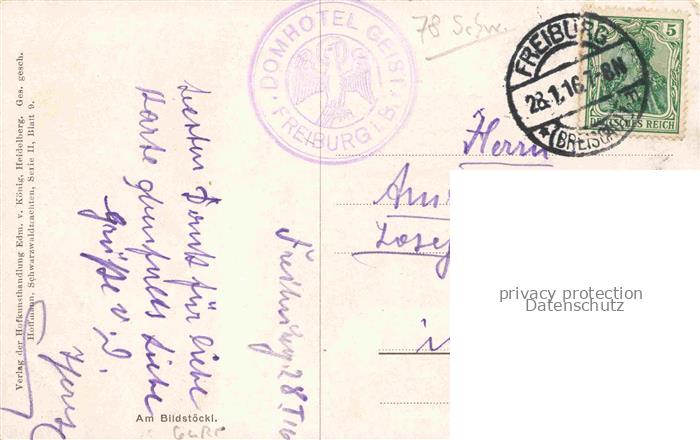 78 Schw.
DOMHOTEL GEIST
FREIBURG i. B.
FREIBURG
28.1.16.7-8N
(BREISGAU)
5
DEUTSCHES REICH
Herrn
Josef
privacy protection
Datenschutz
Verlag der Hofkunsthandlung Edm. v. König, Heidelberg. Ges. gesch.
Hoffmann, Schwarzwaldtrachten, Serie II, Blatt 9.
Am Bildstöckl.
Freiburg 28 I 16
Besten Dank für liebe
Karte ebenfalls liebe
Grüße v. D.